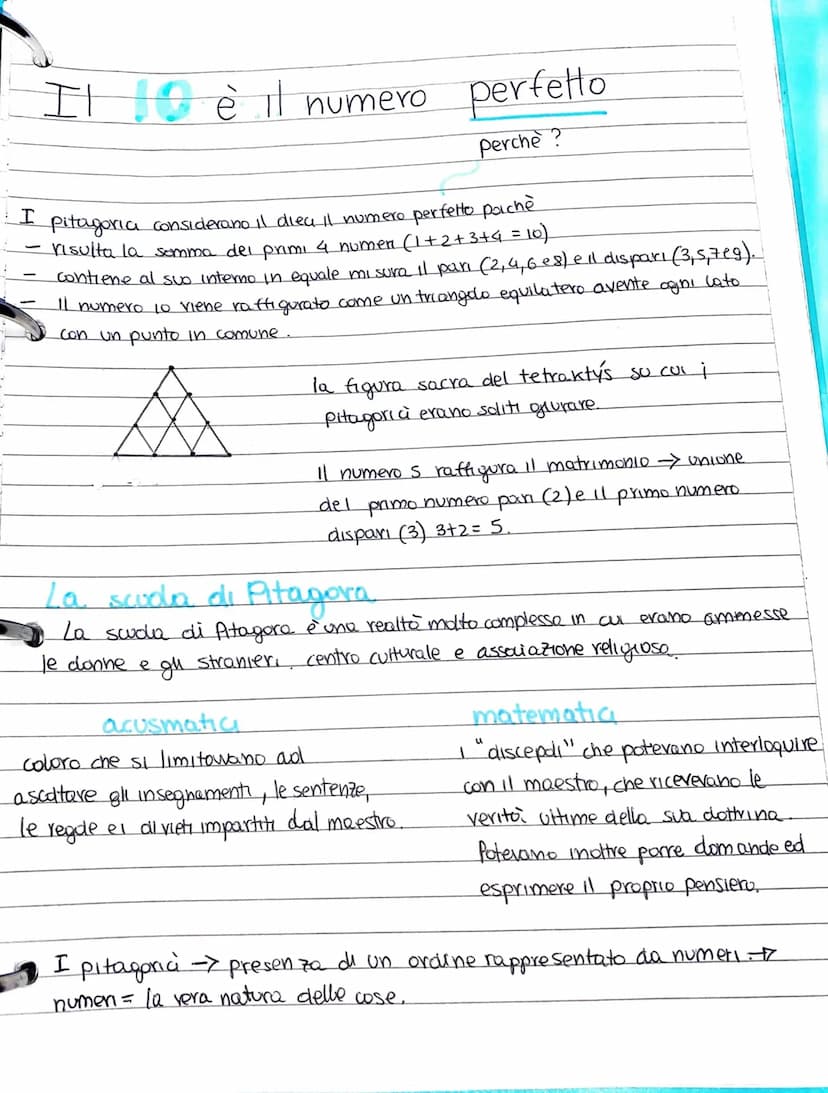 Il 10 è il numero perfetto
perchè?
I pitagorici considerano il dieci il numero perfetto poichè
- risulta la somma dei primi 4 numeri (1+2+3+4 = 10)
- contiene al suo interno in equale misura il pari (2,4,6 e 8) e il dispari (3,5,7 e 9).
- Il numero 10 viene raffigurato come un triangolo equilatero avente ogni lato
con un punto in comune.
la figura sacra del tetraktýs su cui i
pitagorici erano soliti giurare.
Il numero 5 raffigura il matrimonio → unione
del primo numero pari (2) e il primo numero
dispari (3) 3+2= 5.
La scuola di Pitagora
La scuola di Pitagora è una realtà molto complessa in cui erano ammesse
le donne e gli stranieri, centro culturale e associazione religiosa.
acusmatici
coloro che si limitavano ad
ascoltare gli insegnamenti, le sentenze,
le regole e i divieti impartiti dal maestro.
matematici
i "discepoli" che potevano interloquire
con il maestro, che ricevevano le
verità ultime della sua dottrina.
Potevano inoltre porre domande ed
esprimere il proprio pensiero.
I pitagorici → presenza di un ordine rappresentato da numeri →
numeri = la vera natura delle cose.